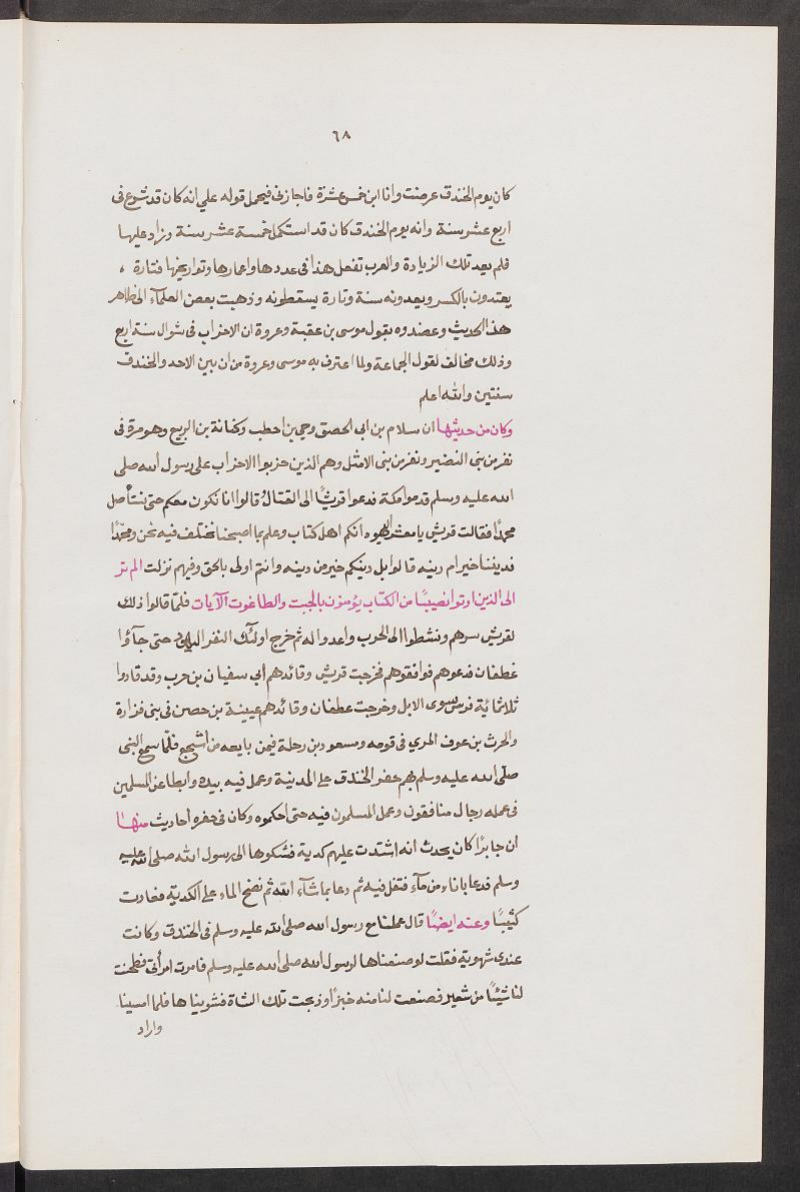 ٦٨
كان يوم الخندق عرضت وانا ابن خمس عشرة فاجازنى فيحمل قوله علي انه كان قد شرع فى
اربع عشر سنة وانه يوم الخندق كان قد استكمل خمسة عشر سنة وزاد عليها
فلم يعد تلك الزيادة والعرب تفعل هذا فى عددها واعمارها وتواريخها فتارة ،
يعتدون بالكسر ويعدونه سنة وتارة يسقطونه وذهبت بعض العلمآء الى ظاهر
هذا الحديث وعضدوه بقول موسى بن عقبة وعروة ان الاحزاب فى شوال سنة اربع
وذلك مخالف لقول الجماعة ولما اعترف به موسى وعروة من ان بين الاحد والخندق
سنتين والله اعلم
وكان من حديثها ان سلام بن ابى الحصق وحي بن احطب وكنانة بن الربيع وهو مرة فى
نفر من بنى النضير ونفر من بنى الامثل وهم الذين حزبوا الاحزاب على رسول الله صلى
الله عليه وسلم قدموا مكة فدعوا قريشًا الى القتال قالوا انا نكون معكم حتى نستأصل
محمدًا فقالت قريش يا معشر اليهود انكم اهل كتاب وعلم بما اصبحنا نختلف فيه نحن ومحمدًا
فديننا خير ام دينه قالوا بل دينكم خير من دينه وانتم اولى بالحق وفيهم نزلت الم تر
الى الذين اوتوا نصيبًا من الكتاب يؤمنون بالجبت والطاغوت الآيات فلمّا قالوا ذلك
لقريش سرهم ونشطوا الى الحرب واعدوا له ثم خرج اولئك النفر اليهود حتى جآؤا
غطفان فدعوهم فوافقوهم فخرجت قريش وقائدهم أبي سفيان بن حرب وقد قادوا
ثلاثمائية فرس سوى الابل وخرجت عطفان وقائدهم عيينة بن حصن فى بنى فزارة
والحرث بن عوف المري فى قومه ومسعود بن رحلة فيمن بايعه من أشجع فلمّا سمع النبى
صلى الله عليه وسلم بهم حفر الخندق على المدينة وعمل فيه بيده وابطا عن المسلمين
فى عمله رجال منافقون وعمل المسلمون فيه حتى احكموه وكان فى حفره احاديث منها
ان جابرًا كان يحدث انه اشتدت عليهم كدية فشكوها الى رسول الله صلى الله عليه
وسلم فدعا باناء من مآء فتفل فيه ثم دعا بما شآء الله ثم نضح الماء على الكدية فعادت
كثيبًا وعنه ايضًا قال عملنا مع رسول الله صلى الله عليه وسلم فى الخندق وكانت
عندى شهوية فقلت لو صنعناها لرسول الله صلى الله عليه وسلم فامرت امرأتى فطحنت
لنا شيئًا من شعير فصنعت لنا منه خبزًا وذبحت تلك الشاة فشويناها فلما امسينا
واراد